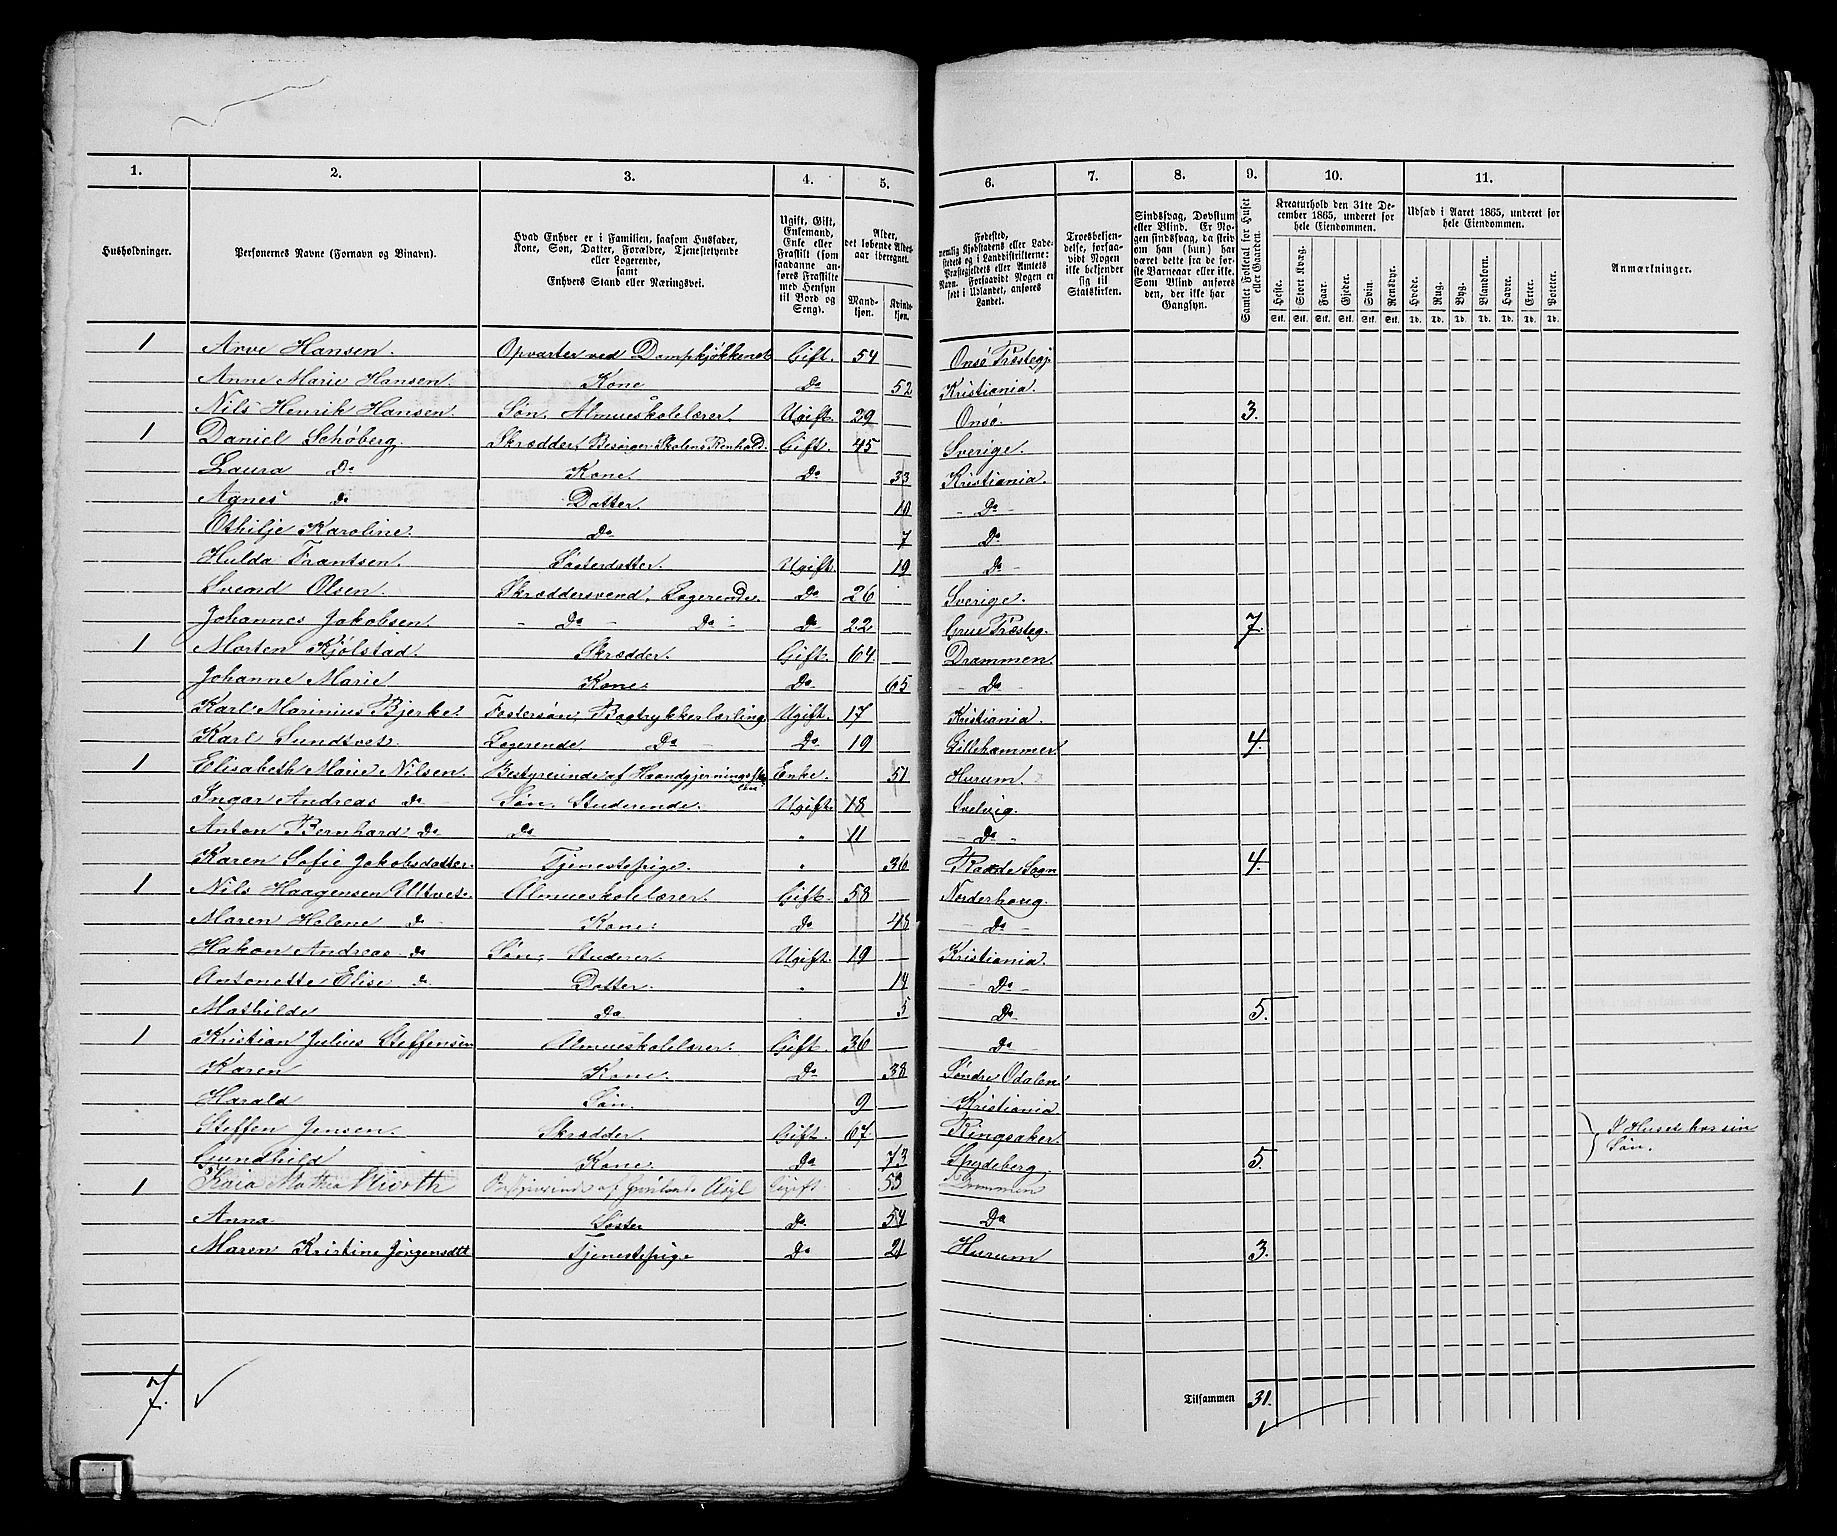 1. 2. 3. 4. 5. 6. 7. 8. 9. 10. 11.
Husholdninger.
Personernes Navne (Fornavn og Binavn).
Hvad Enhver er i Familien, saasom Husfader,
Kone, Søn, Datter, Forældre, Tjenestetyende
eller Logerende,
samt
Enhvers Stand eller Næringsvei.
Ugift, Gift,
Enkemand,
Enke eller
Fraskilt (som
saadanne an-
føres Fraskilte
med Hensyn
til Bord og
Seng).
Alder,
det løbende Alders-
aar iberegnet.
Mand-
kjøn.
Kvinde-
kjøn.
Fødested,
nemlig Kjøbstadens eller Lade-
stedets og i Landdistrikterne:
Præstegjeldets eller Amtets
Navn. Forsaavidt Nogen er
født i Udlandet, anføres
Landet.
Troesbekjen-
delse, forsaa-
vidt Nogen
ikke bekjender
sig til
Statskirken.
Sindssvag, Døvstum
eller Blind. Er No-
gen sindssvag, da skriv
om han (hun) har
været dette fra de før-
ste Barneaar eller ikke.
Som Blind anføres
den, der ikke har
Gangsyn.
Samlet Folketal for Huset
eller Gaarden.
Kreaturhold den 31te De-
cember 1865, underet for
hele Eiendommen.
Heste. Stort Kvæg. Faar. Gjeder. Svin. Rensdyr.
Stk. Stk. Stk. Stk. Stk. Stk.
Udsæd i Aaret 1865, underet for
hele Eiendommen.
Hvede. Rug. Byg. Blandkorn. Havre. Erter. Poteter.
Td. Td. Td. Td. Td. Td. Td.
Anmærkninger.
1 Arve Hansen. Opvarter ved Dampkjøkkenet Gift. 54 Onsø Præstegj.
Anne Marie Hansen. Kone Do 52 Kristiania.
Nils Henrik Hansen. Søn, Almueskolelærer. Ugift. 29 Onsø. 3.
1 Daniel Schøberg. Skrædder, Besørger Skolens Renhold. Gift. 45 Sverige.
Laura Do Kone. Do 33 Kristiania.
Agnes do Datter. 10 - Do -
Othilje Karoline. Do 7 Do
Hulda Frantsen. Søsterdatter. Ugift. 19 Do -
Svend Olsen. Skræddersvend, Logerende. Do 26 Sverige.
Johannes Jakobsen - Do - Do - Do 22 Grue Præsteg. 7.
1 Morten Kjølstad. Skrædder. Gift. 64. Drammen.
Johanne Marie Kone. Do 65 - Do -
Karl Marinius Bjerke. Fostersøn, Bogtrykkerlærling. Ugift. 17 Kristiania.
Karl Sundtvet. Logerende Do - Do. 19 Lillehammer. 4.
1 Elisabeth Marie Nilsen. Bestyrerinde af Haandgjernings Enke. 51 Hurum.
Ingar Andreas do - Søn, Studerende. Ugift. 18 Svelvig.
Anton Bernhard Do Do " 11 - Do -
Karen Sofie Jakobsdatter. Tjenestepige. " 36 Raade Sogn 4.
1 Nils Haagensen Almueskolelærer. Gift. 58 Norderhoug.
Maren Helene do - Kone. Do 48 - Do -
Hakon Andreas do Søn, Studerer. Ugift. 19 Kristiania.
Antonette Elise do. Datter. " 14 - Do -
Mathilde Do 5 Do 5.
1 Kristian Julius Steffensen Almueskolelærer. Gift. 36 Do
Karen Kone. Do 38 Søndre Odalen
Harald Søn. 9 Kristiania
Steffen Jensen. Skrædder. Gift. 67. Ringsaker.
Gundhild Kone. Do 73 Spydeberg. 5.
I Huset hos sin
Søn.
1 Kaia Mathea Bestyrerinde af Grønlands Asyl Ugift 53 Drammen
Anna Søster Do. 54 Do
Maren Kristine Jørgensdtt Tjenestepige Do 21 Hurum 3.
7. Tilsammen 31.